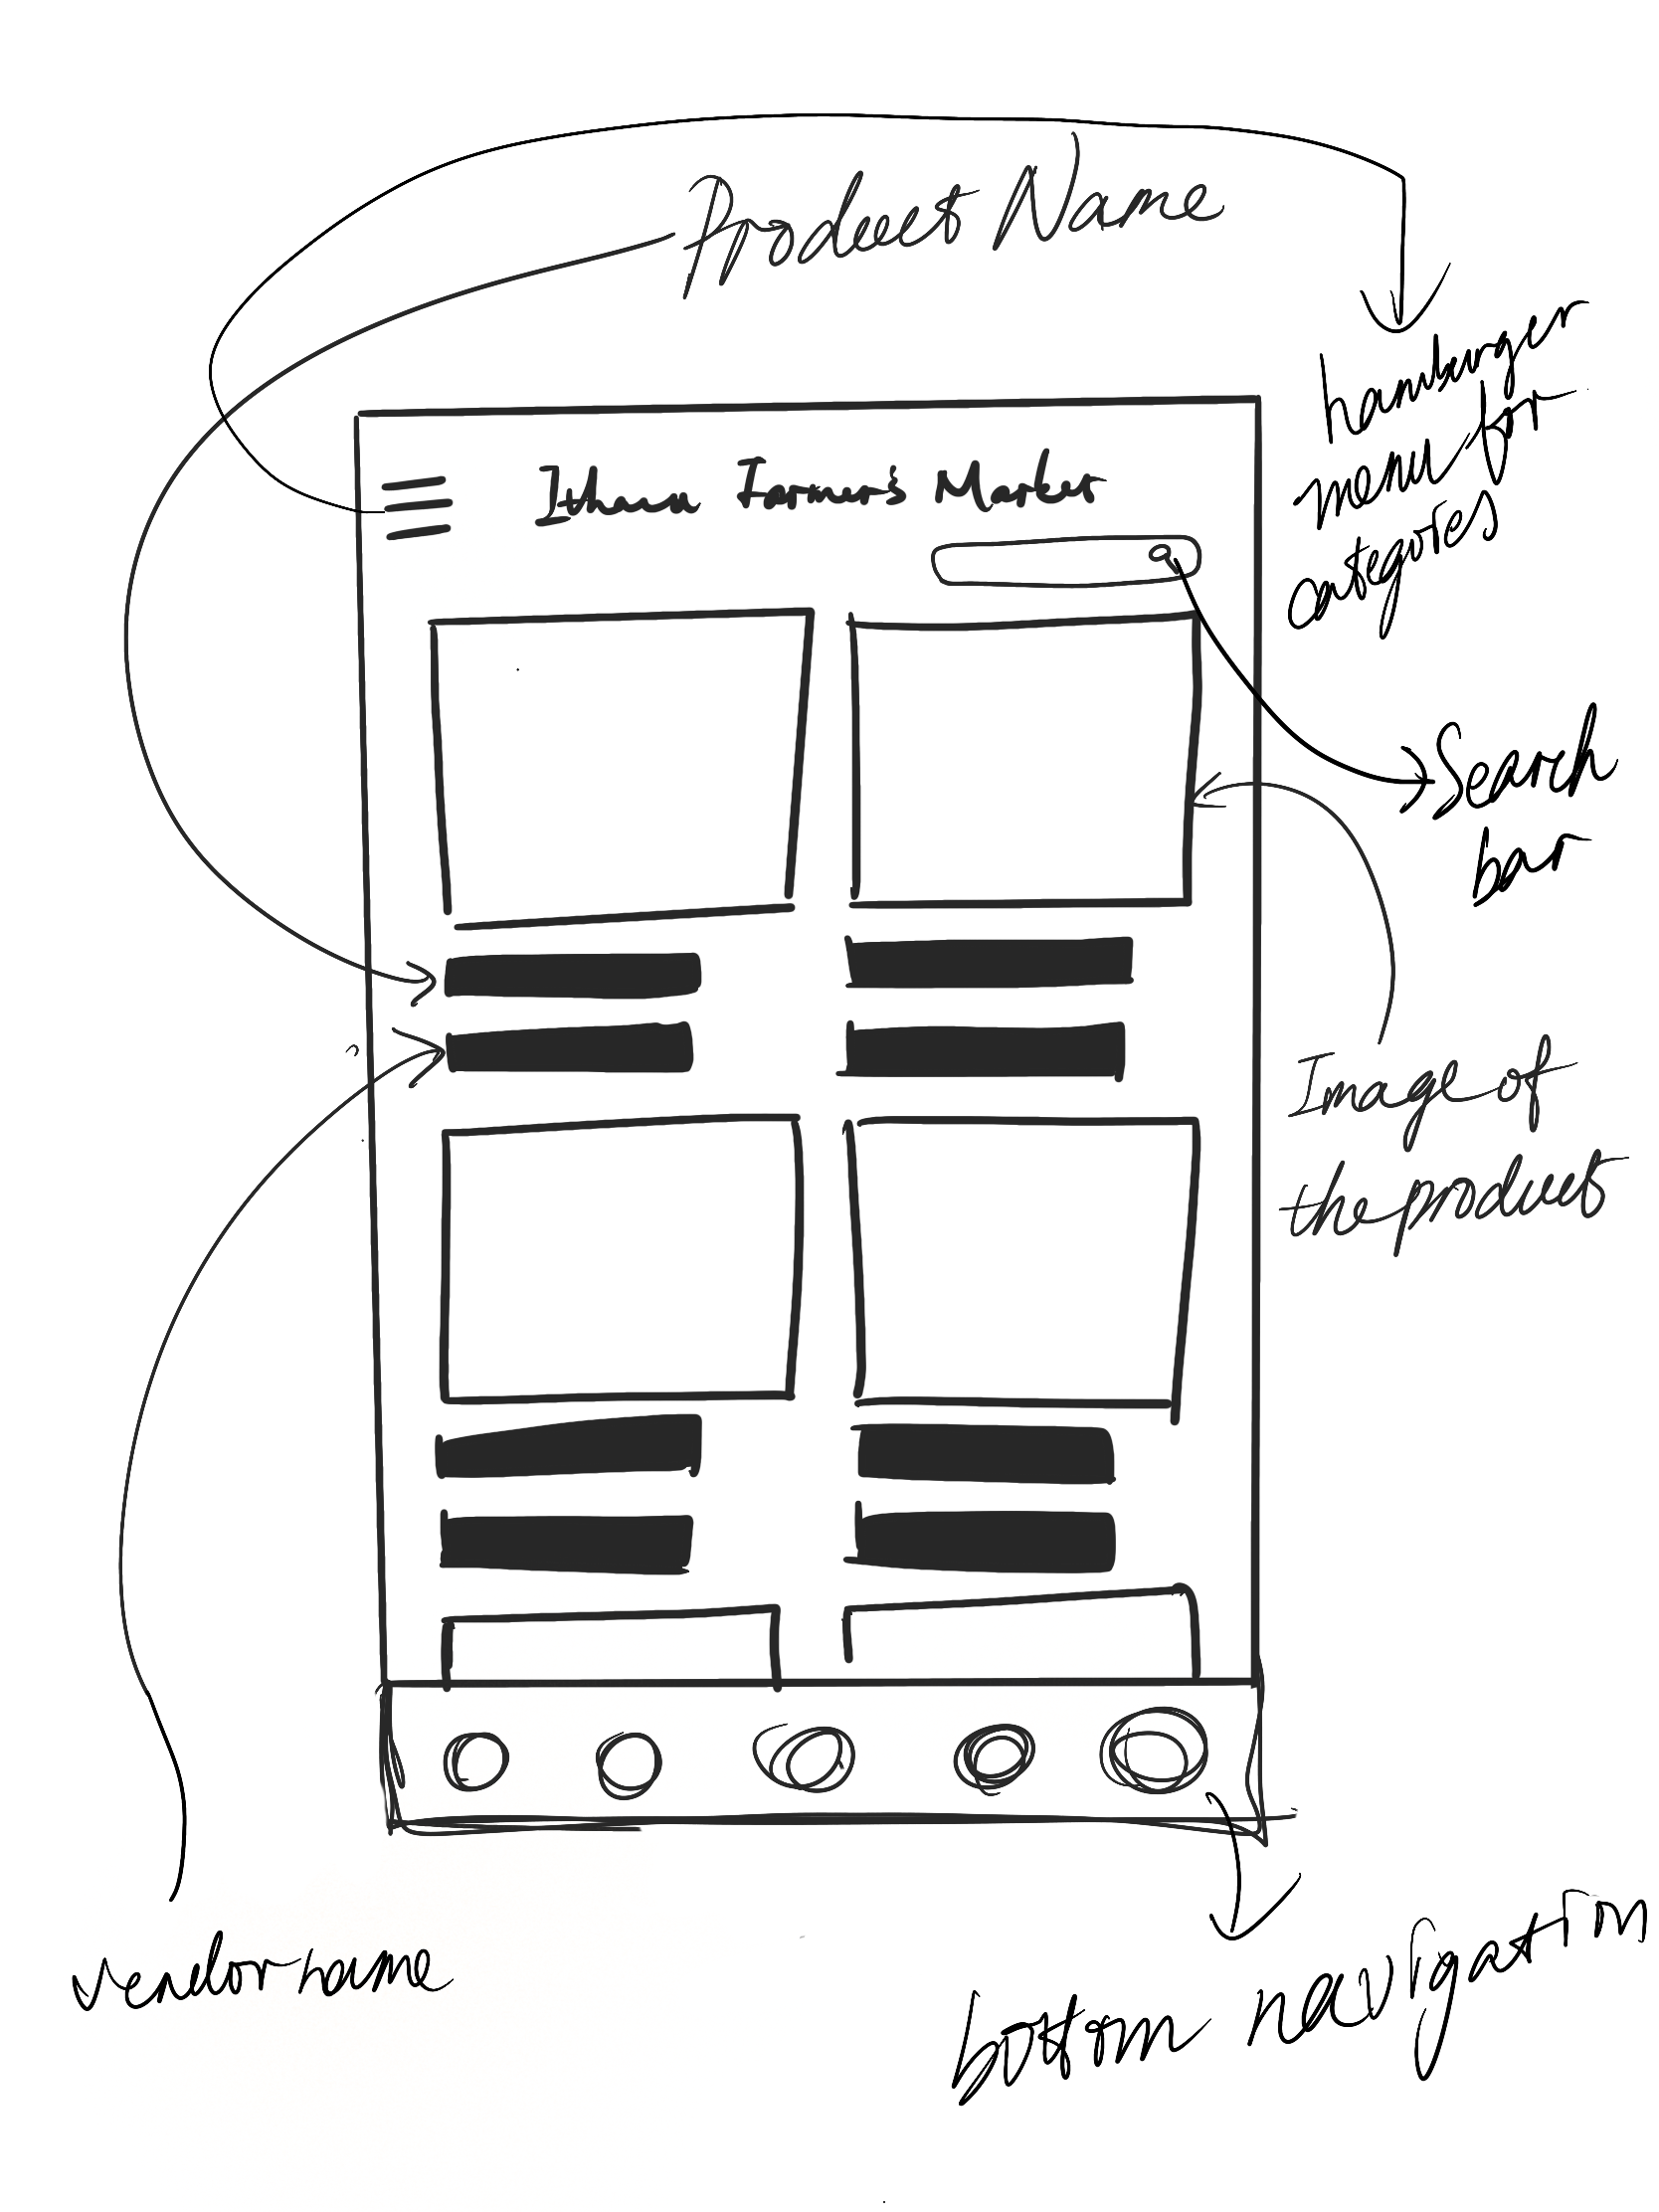 Product Name
hamburger
menu for
categories
Ithaca Farmer's Market
Search
bar
Image of
the product
vendor name
bottom navigation